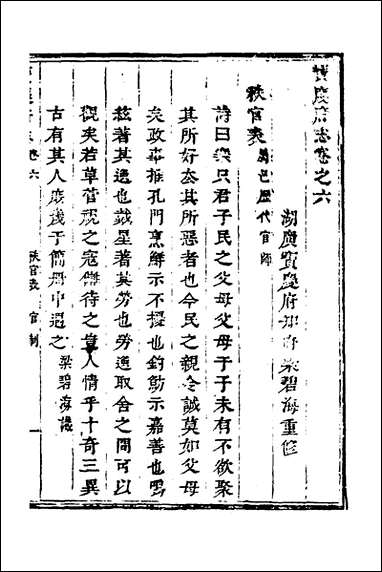 寶慶府志卷之六
湖廣寶慶府知府梁碧海重修
秩官表 屬邑歷代官師
詩曰樂只君子民之父母父母于子未有不欲聚
其所好去其所惡者也今民之親令誠莫如父母
矣政奉推孔門烹鮮示不擾也釣魴示嘉善也鳴
絃著其逸也戴星著其勞也勞逸取舍之間可以
觀矣若草菅視之寇讎待之豈人情乎十奇三異
古有其人庶幾于簡冊中遇之 梁碧海識
卷六
秩官表 官制
一